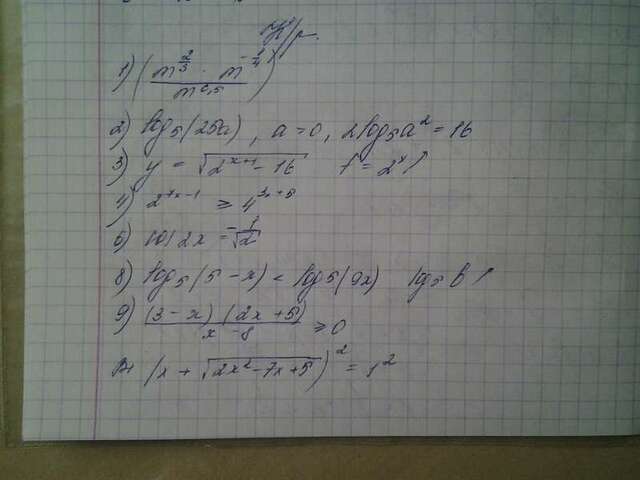 К/р.
1) (m^{2/3} · m^{-1/4} / m^{0,5})
2) log₅(25a), a = 0, 2log₅a² = 16
3) y = √(2^{x+1} - 16) f = 2^x ↑
4) 2^{7x-1} ≥ 4^{3x+5}
5) cos 2x = -1/√2
8) log₅(5 - x) < log₅(9x) log₅ b ↑
9) (3 - x)(2x + 5) / x - 8 ≥ 0
(x + √(2x² - 7x + 5))² = 1²